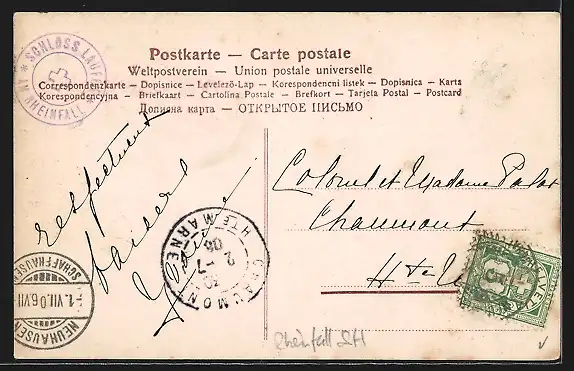 SCHLOSS LAUFEN
AM RHEINFALL
Postkarte — Carte postale
Weltpostverein — Union postale universelle
Correspondenzkarte — Dopisnice — Levelező-Lap — Korespondencni listek — Dopisnica — Karta
Korespondencyjna — Briefkaart — Cartolina Postale — Brefkort — Tarjeta Postal — Postcard
Дописна карта — ОТКРЫТОЕ ПИСЬМО
respectueux
baisers
CHAUMONT
HTE MARNE
2 -7
06
SCHAFFHAUSEN
-1.VII.06.VII
NEUHAUSEN
Colonel et Madame
Chaumont
Hte
Rheinfall SH